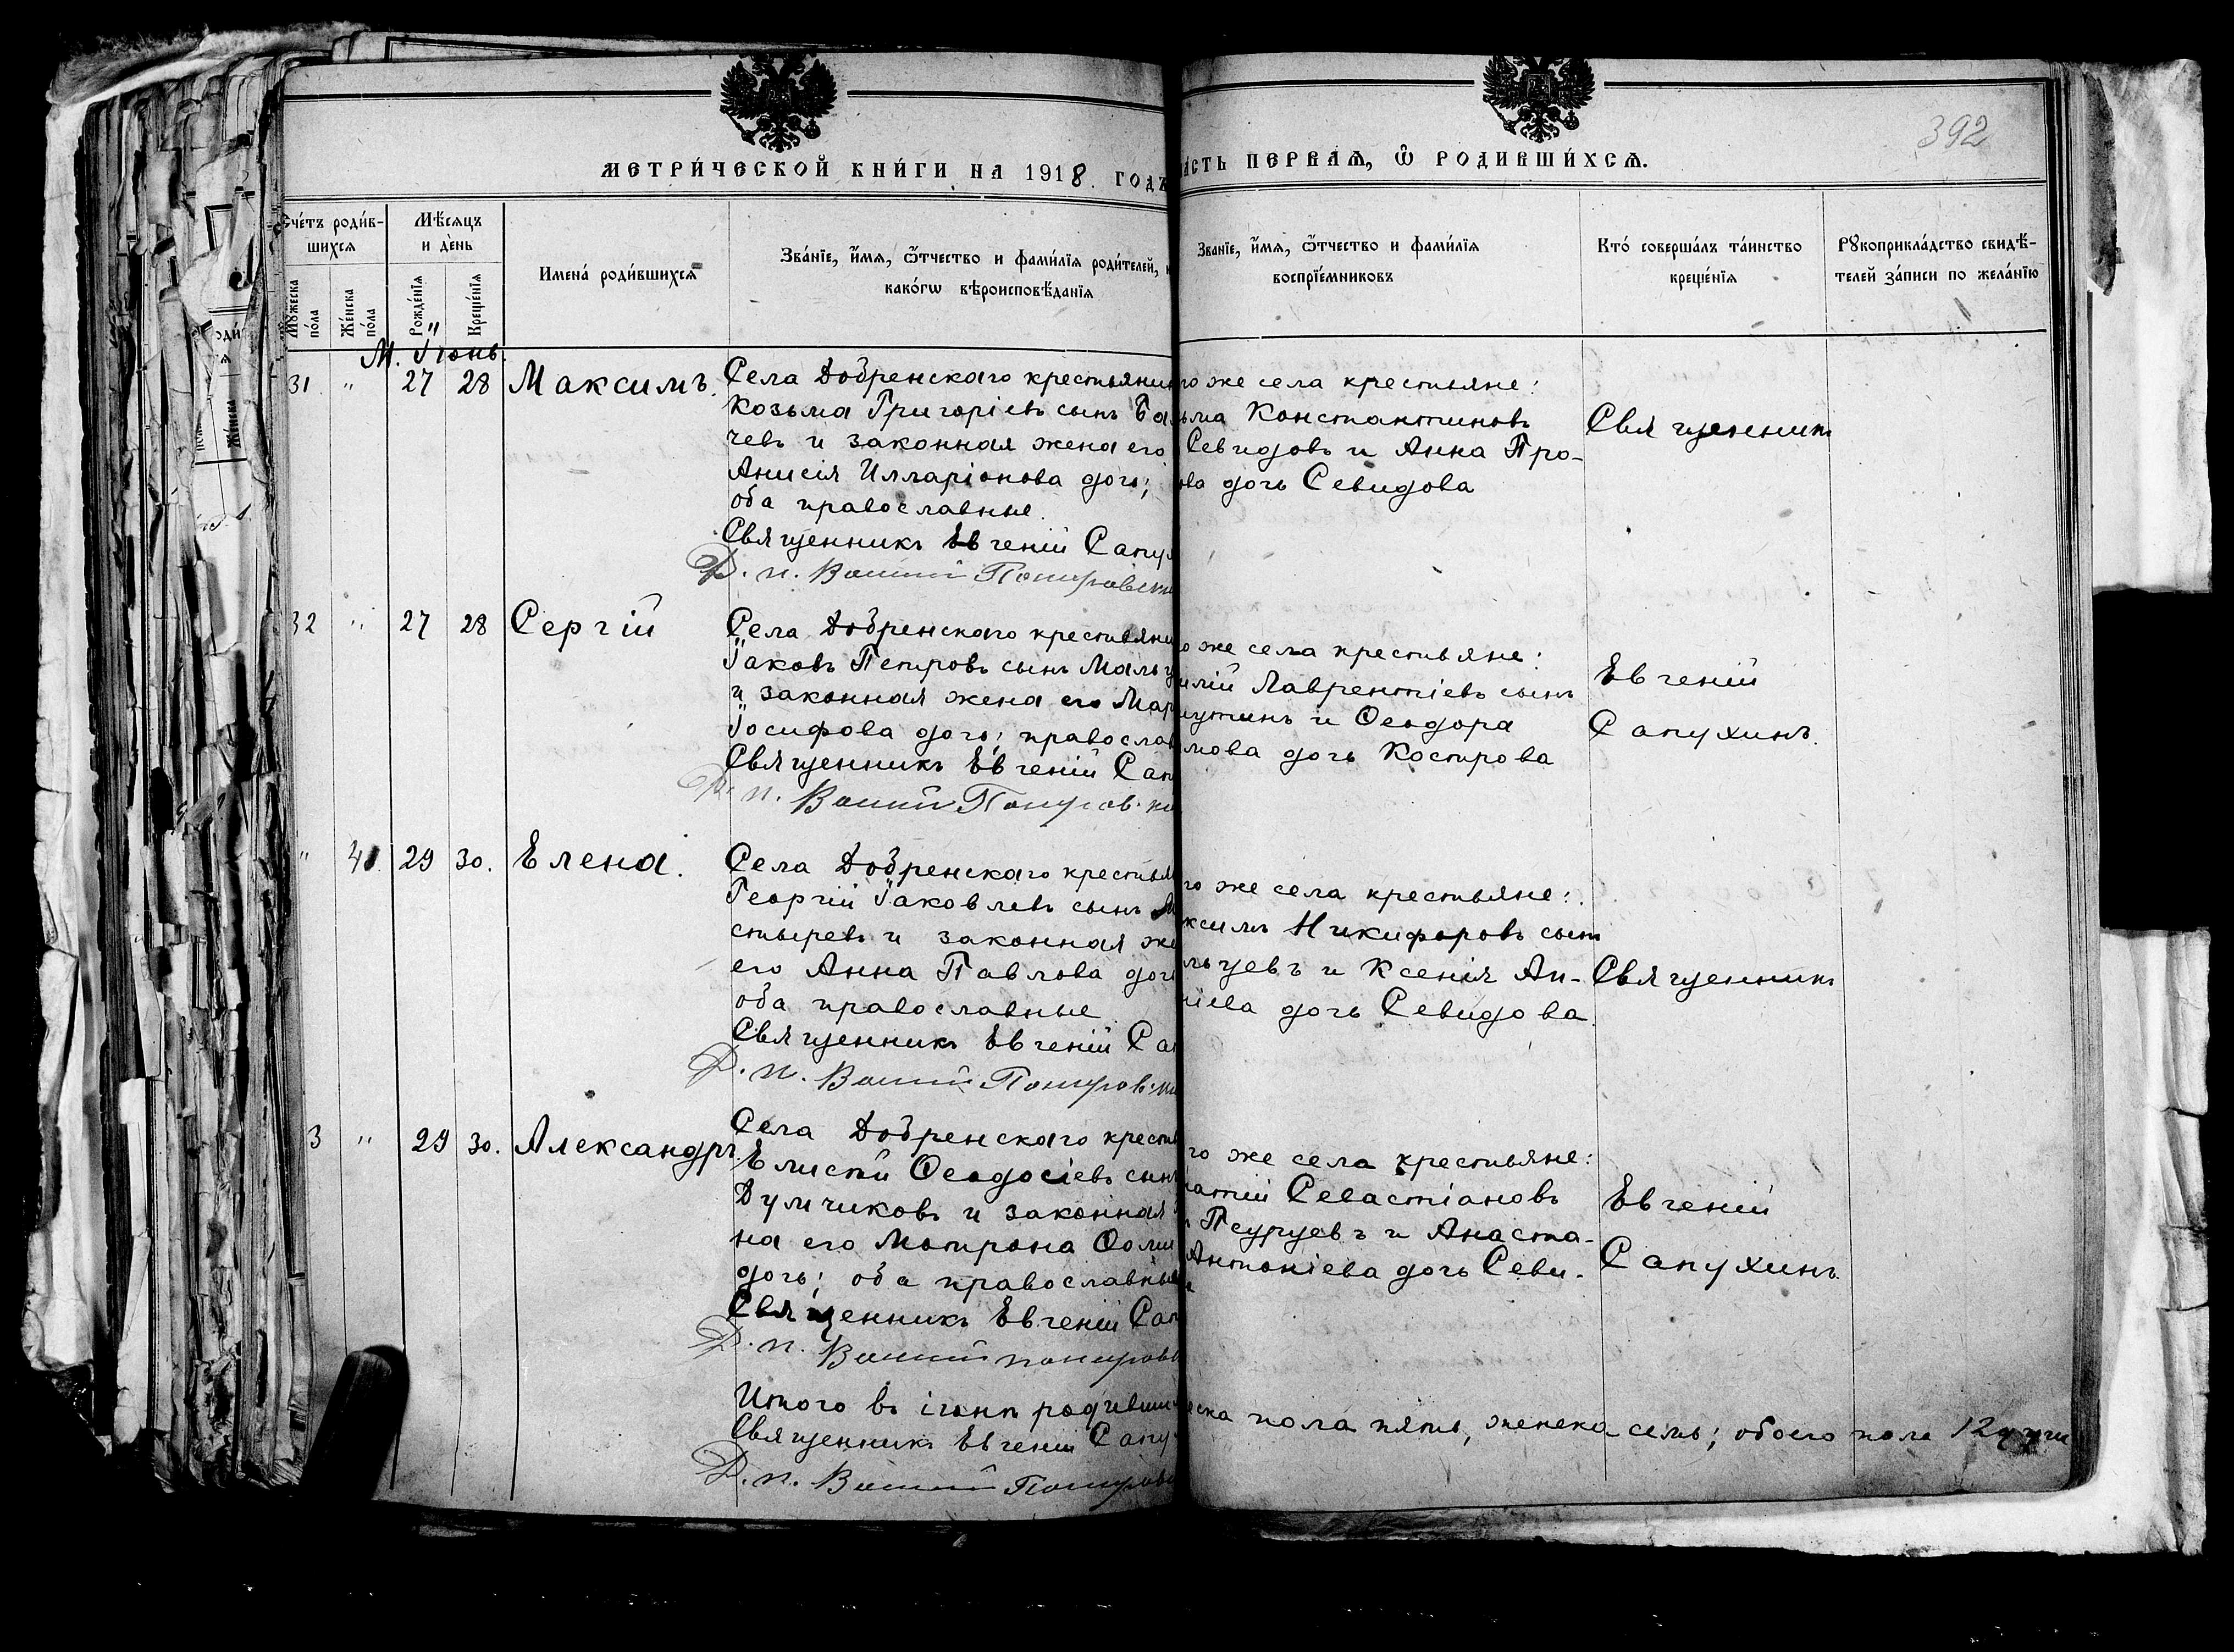 392
МЕТРИ́ЧЕСКОЙ КНИ́ГИ НА 1918 ГОДЪ
ЧАСТЬ ПЕРВАѦ, Ѿ РОДИВШИ́ХСѦ.
Сче́тъ роди́в-
шихсѧ
Мѣ́сѧцъ
и де́нь
Му́жеска
по́ла
Же́нска
по́ла
Рожде́нїѧ
Креще́нїѧ
Имена́ роди́вшихсѧ
Зва́нїе, и҆́мѧ, ѻ҆́тчество и фами́лїѧ роди́телей, и
како́гѡ вѣроисповѣ́данїѧ
Зва́нїе, и҆́мѧ, ѻ҆́тчество и фами́лїѧ
воспрїе́мниковъ
Кто́ соверша́лъ та́инство
креще́нїѧ
Рꙋкоприкла́дство свидѣ́-
телей за́писи по жела́нїю
М. Іюнь.
31 " 27 28 Максимъ.
Села Добренскаго крестьянин
Козьма Григоріевъ сынъ Ба
чевъ и законная жена его
Анисія Илларіонова дочь;
оба православные.
Священникъ Евгеній Сапу
Д. п.
го же села крестьяне:
ьма Константиновъ
Севидовъ и Анна Про-
ова дочь Севидова
Священникъ
32 " 27 28 Сергій
Села Добренскаго крестьяни
Іаковъ Петровъ сынъ Мальц
и законная жена его Мар
Іосифова дочь; православ
Священникъ Евгеній Сап
п.
о же села крестьяне:
илій Лаврентіевъ сынъ
утинъ и Ѳеодора
мова дочь Кострова
Евгеній
Сапухинъ.
" 41. 29 30. Елена.
Села Добренскаго крестья
Георгій Іаковлевъ сынъ М
стыревъ и законная же
его Анна Павлова дочь
оба православные
Священникъ Евгеній Са
Д. п.
го же села крестьяне:
ксимъ Никифоровъ сынъ
льцевъ и Ксенія Ан-
ніева дочь Севидова.
Священникъ
3 " 29 30. Александръ.
Села Добренскаго крест
Елисѣй Ѳеодосіевъ сынъ
Думчиковъ и законная
на его Матрона Ѳоми
дочь; оба православные
Священникъ Евгеній Сап
Д. п.
го же села крестьяне:
атій Севастіановъ
Псурцевъ и Анаста-
Антоніева дочь Севи-
Евгеній
Сапухинъ.
Итого въ іюнѣ родивши
ска пола пять, женска семь; обоего пола 12 души
Священникъ Евгеній Сапу
Д. п.